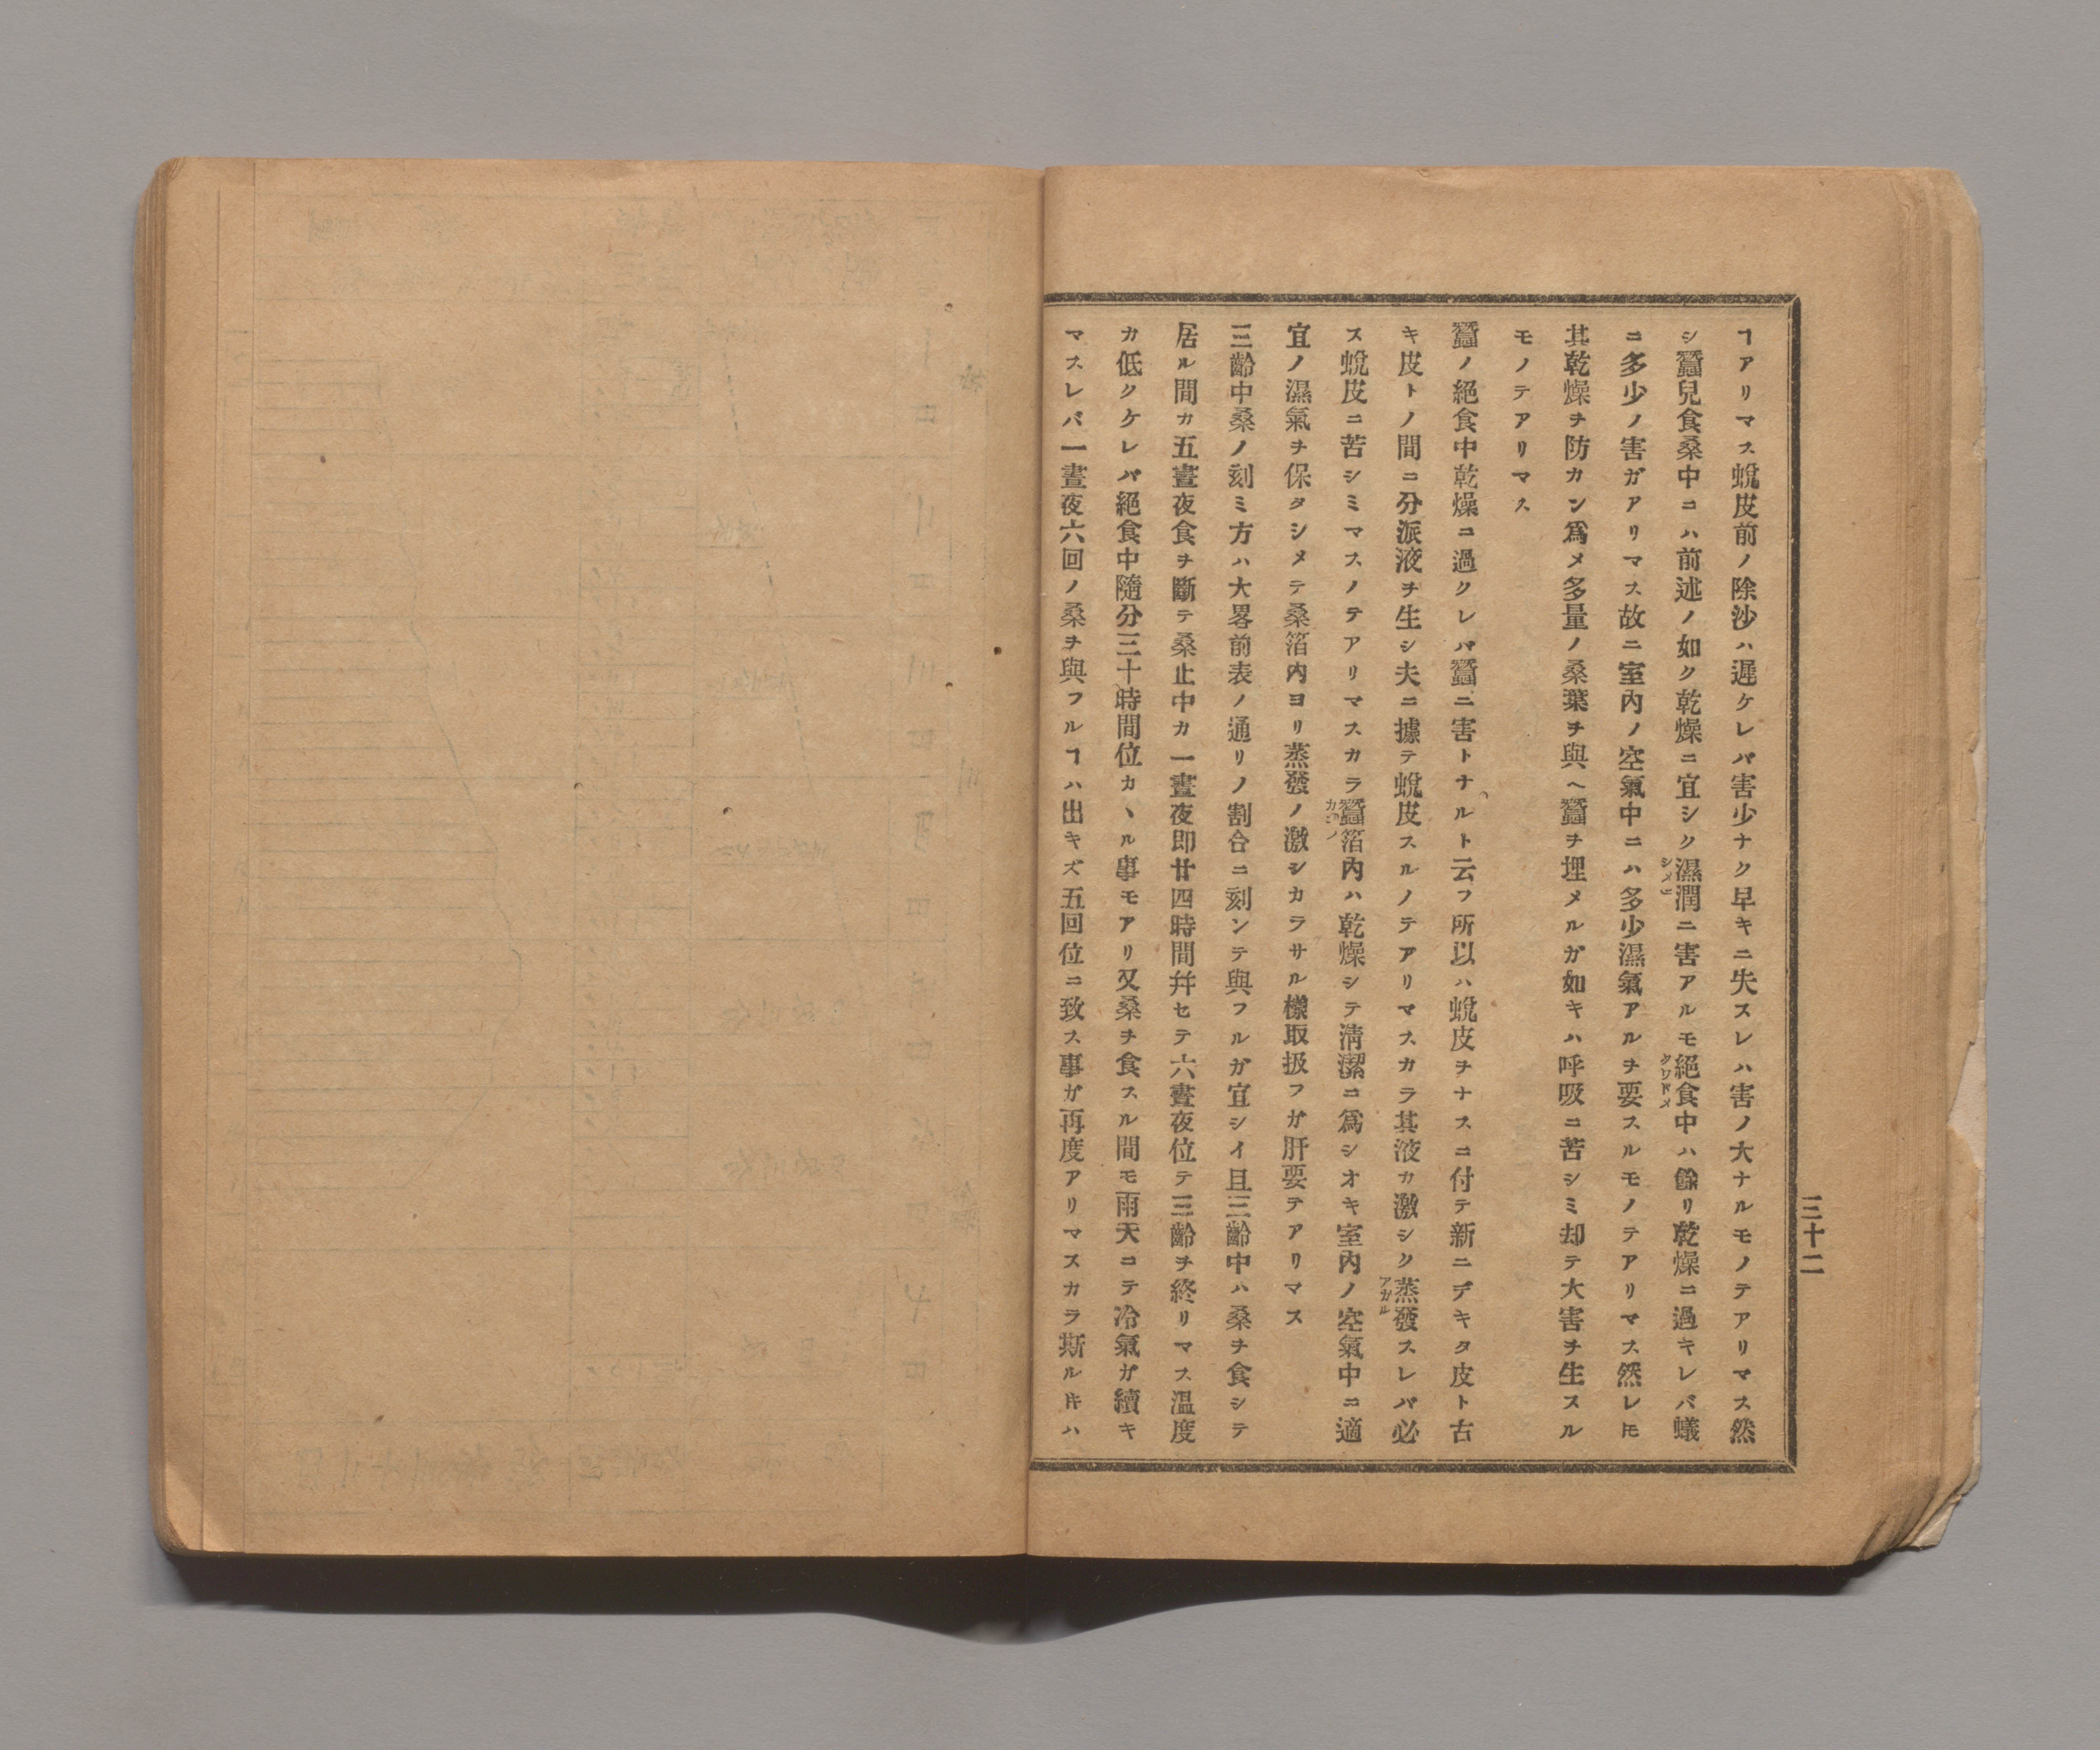 三十二
ヿアリマス蛻皮前ノ除沙ハ遲ケレバ害少ナク早キニ失スレハ害ノ大ナルモノテアリマス然
シ蠶兒食桑中ニハ前述ノ如ク乾燥ニ宜シク濕潤ニ害アルモ絕食中ハ餘リ乾燥ニ過キレバ蟻
ニ多少ノ害ガアリマス故ニ室內ノ空氣中ニハ多少濕氣アルヲ要スルモノテアリマス然レ𪜈
其乾燥ヲ防カン爲メ多量ノ桑葉ヲ與ヘ蠶ヲ埋メルガ如キハ呼吸ニ苦シミ却テ大害ヲ生スル
モノテアリマス
蠶ノ絕食中乾燥ニ過クレバ蠶ニ害トナルト云フ所以ハ蛻皮ヲナスニ付テ新ニデキタ皮ト古
キ皮トノ間ニ分派液ヲ生シ夫ニ據テ蛻皮スルノテアリマスカラ其液カ激シク蒸發スレバ必
ス蛻皮ニ苦シミマスノテアリマスカラ蠶箔內ハ乾燥シテ淸潔ニ爲シオキ室內ノ空氣中ニ適
宜ノ濕氣ヲ保タシメテ桑箔內ヨリ蒸發ノ激シカラサル樣取扱フガ肝要テアリマス
三齡中桑ノ刻ミ方ハ大畧前表ノ通リノ割合ニ刻ンテ與フルガ宜シイ且三齡中ハ桑ヲ食シテ
居ル間カ五晝夜食ヲ斷テ桑止中カ一晝夜即廿四時間幷セテ六晝夜位テ三齡ヲ終リマス溫度
カ低クケレバ絕食中隨分三十時間位カヽル事モアリ又桑ヲ食スル間モ雨天ニテ冷氣ガ續キ
マスレバ一晝夜六回ノ桑ヲ與フルヿハ出キズ五回位ニ致ス事ガ再度アリマスカラ斯ルドキハ